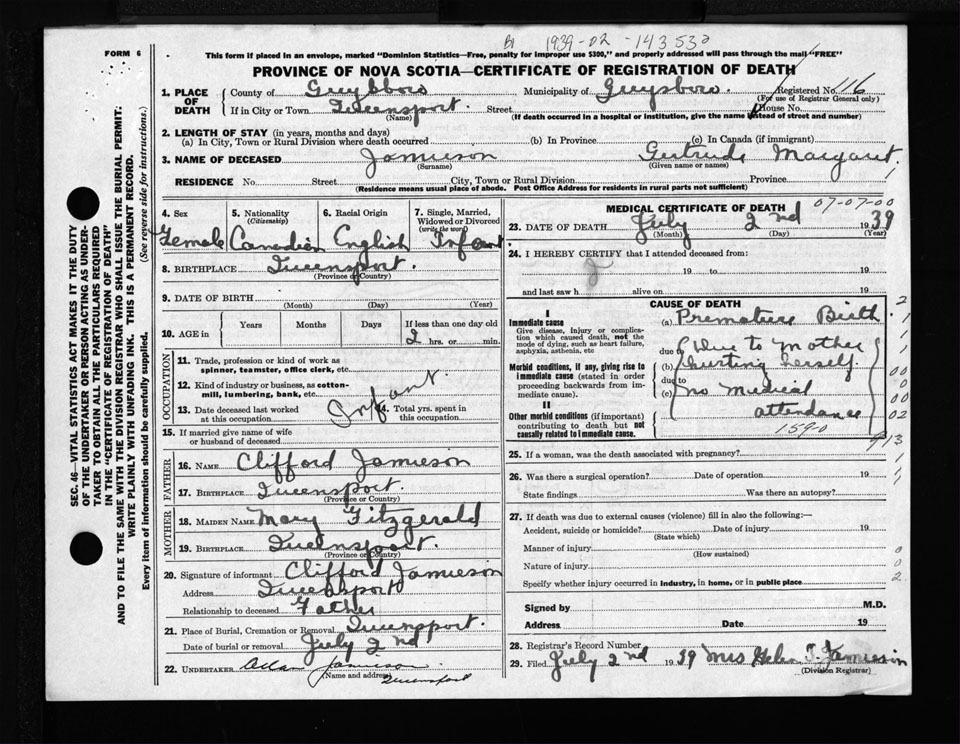 FORM 6
B1 1939-02-143530
This form if placed in an envelope, marked "Dominion Statistics—Free, penalty for improper use $300," and properly addressed will pass through the mail "FREE"
PROVINCE OF NOVA SCOTIA—CERTIFICATE OF REGISTRATION OF DEATH
SEC. 46—VITAL STATISTICS ACT MAKES IT THE DUTY
OF THE UNDERTAKER OR PERSON ACTING AS UNDER-
TAKER TO OBTAIN ALL THE PARTICULARS REQUIRED
IN THE "CERTIFICATE OF REGISTRATION OF DEATH"
AND TO FILE THE SAME WITH THE DIVISION REGISTRAR WHO SHALL ISSUE THE BURIAL PERMIT.
WRITE PLAINLY WITH UNFADING INK. THIS IS A PERMANENT RECORD.
Every item of information should be carefully supplied. (See reverse side for instructions.)
1. PLACE OF DEATH
County of Guysboro Municipality of Guysboro. Registered No. 116
(For use of Registrar General only)
If in City or Town Queensport. Street House No.
(Name) (If death occurred in a hospital or institution, give the name instead of street and number)
2. LENGTH OF STAY (in years, months and days)
(a) In City, Town or Rural Division where death occurred (b) In Province (c) In Canada (if immigrant)
3. NAME OF DECEASED Jamieson Gertrude Margaret.
(Surname) (Given name or names)
RESIDENCE No. Street City, Town or Rural Division Province 1
(Residence means usual place of abode. Post Office Address for residents in rural parts not sufficient)
4. Sex 5. Nationality 6. Racial Origin 7. Single, Married,
(Citizenship) Widowed or Divorced
(write the word)
Female Canadian English Infant
8. BIRTHPLACE Queensport.
(Province or Country)
9. DATE OF BIRTH
(Month) (Day) (Year)
10. AGE in Years Months Days If less than one day old
2 hrs. or min.
OCCUPATION
11. Trade, profession or kind of work as
spinner, teamster, office clerk, etc.
12. Kind of industry or business, as cotton-
mill, lumbering, bank, etc.
Infant.
13. Date deceased last worked at this occupation 14. Total yrs. spent in this occupation
15. If married give name of wife
or husband of deceased
FATHER
16. NAME Clifford Jamieson
17. BIRTHPLACE Queensport.
(Province or Country)
MOTHER
18. MAIDEN NAME Mary Fitzgerald
19. BIRTHPLACE Queensport.
(Province or Country)
20. Signature of informant Clifford Jamieson
Address Queensport
Relationship to deceased Father
21. Place of Burial, Cremation or Removal Queensport.
Date of burial or removal July 2nd
22. UNDERTAKER Allan Jamieson
(Name and address) Queensport
MEDICAL CERTIFICATE OF DEATH 07-07-00
23. DATE OF DEATH July 2nd 1939
(Month) (Day) (Year)
24. I HEREBY CERTIFY that I attended deceased from:
19 to 19
and last saw h alive on 19
CAUSE OF DEATH
I
Immediate cause (a) Premature Birth.
Give disease, injury or complica-
tion which caused death, not the
mode of dying, such as heart failure,
asphyxia, asthenia, etc
due to Due to Mother
Morbid conditions, if any, giving rise to
immediate cause (stated in order
proceeding backwards from im-
mediate cause).
(b) hurting herself
due to
(c) no medical
attendance
II
Other morbid conditions (if important)
contributing to death but not
causally related to immediate cause.
1590
2
1
1
1
00
00
02
913
25. If a woman, was the death associated with pregnancy?
26. Was there a surgical operation? Date of operation 19
State findings Was there an autopsy?
27. If death was due to external causes (violence) fill in also the following:—
Accident, suicide or homicide? Date of injury 19
(State which)
Manner of injury
(How sustained)
Nature of injury
Specify whether injury occurred in industry, in home, or in public place
0
0
2
Signed by M.D.
Address Date 19
28. Registrar's Record Number
29. Filed July 2nd 1939 Mrs Helen T. Jamieson
(Division Registrar)